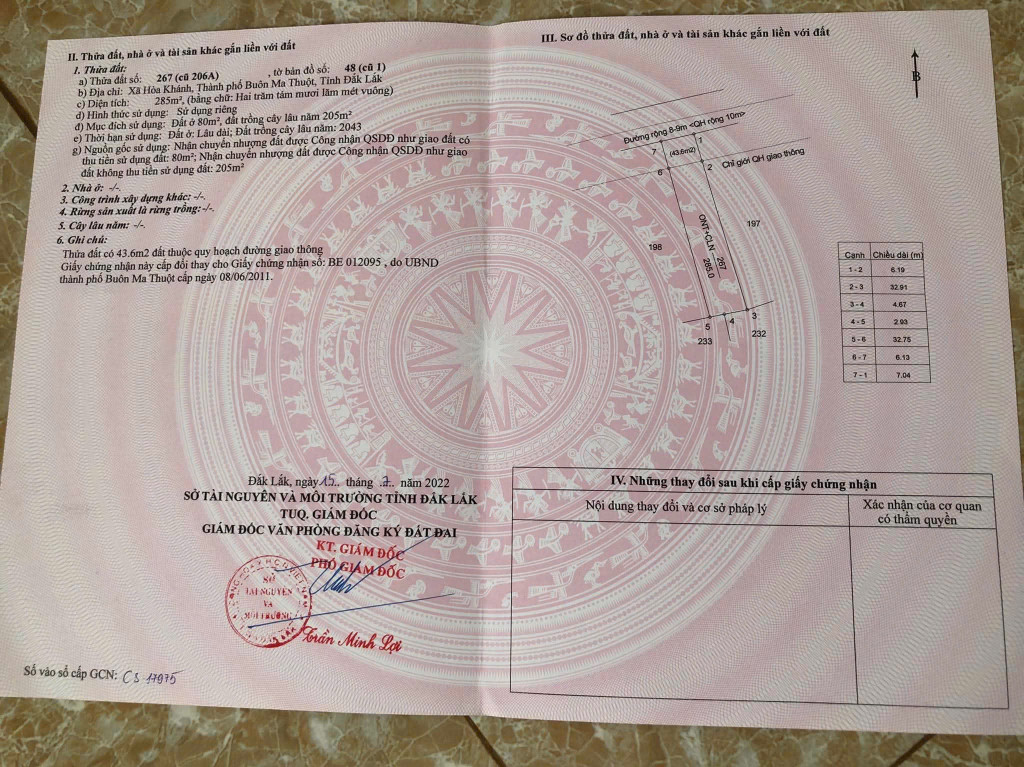 II. Thửa đất, nhà ở và tài sản khác gắn liền với đất
1. Thửa đất:
a) Thửa đất số: 267 (cũ 206A) , tờ bản đồ số: 48 (cũ 1)
b) Địa chỉ: Xã Hòa Khánh, Thành phố Buôn Ma Thuột, Tỉnh Đắk Lắk
c) Diện tích: 285m², (bằng chữ: Hai trăm tám mươi lăm mét vuông)
d) Hình thức sử dụng: Sử dụng riêng
đ) Mục đích sử dụng: Đất ở 80m², đất trồng cây lâu năm 205m²
e) Thời hạn sử dụng: Đất ở: Lâu dài; Đất trồng cây lâu năm: 2043
g) Nguồn gốc sử dụng: Nhận chuyển nhượng đất được Công nhận QSDĐ như giao đất có
thu tiền sử dụng đất: 80m²; Nhận chuyển nhượng đất được Công nhận QSDĐ như giao
đất không thu tiền sử dụng đất: 205m²
2. Nhà ở: -/-.
3. Công trình xây dựng khác: -/-.
4. Rừng sản xuất là rừng trồng:-/-.
5. Cây lâu năm: -/-.
6. Ghi chú:
Thửa đất có 43.6m2 đất thuộc quy hoạch đường giao thông
Giấy chứng nhận này cấp đổi thay cho Giấy chứng nhận số: BE 012095 , do UBND
thành phố Buôn Ma Thuột cấp ngày 08/06/2011.
Đắk Lắk, ngày 15.. tháng .7. năm 2022
SỞ TÀI NGUYÊN VÀ MÔI TRƯỜNG TỈNH ĐẮK LẮK
TUQ. GIÁM ĐỐC
GIÁM ĐỐC VĂN PHÒNG ĐĂNG KÝ ĐẤT ĐAI
KT. GIÁM ĐỐC
PHÓ GIÁM ĐỐC
SỞ
TÀI NGUYÊN
VÀ
MÔI TRƯỜNG
Trần Minh Lợi
Số vào sổ cấp GCN: CS 17975
III. Sơ đồ thửa đất, nhà ở và tài sản khác gắn liền với đất
B
Đường rộng 8-9m <QH rộng 10m>
7
1
(43.6m2)
6
2
Chỉ giới QH giao thông
197
198
ONT+CLN
285.0
267
5
4
3
233
232
Cạnh Chiều dài (m)
1 - 2 6.19
2 - 3 32.91
3 - 4 4.67
4 - 5 2.93
5 - 6 32.75
6 - 7 6.13
7 - 1 7.04
IV. Những thay đổi sau khi cấp giấy chứng nhận
Nội dung thay đổi và cơ sở pháp lý
Xác nhận của cơ quan
có thẩm quyền